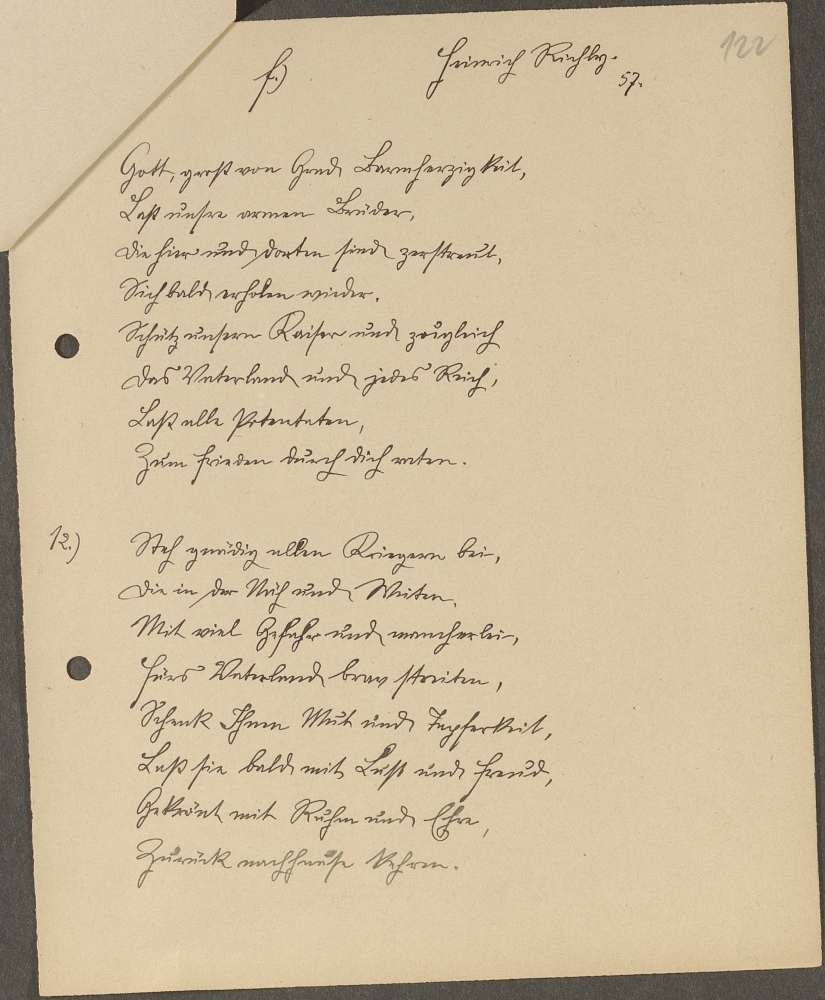 122
f.)
Heinrich Richly.
57.
Gott, groß von Gnad, Barmherzigkeit,
Laß unsre armen Brüder,
Die hier und dorten sind zerstreut,
Sich bald erholen wieder.
Schütz unsern Kaiser und zugleich
Das Vaterland und jedes Reich,
Laß alle Potentaten,
Zum Frieden durch dich raten.
12.) Steh gnädig allen Kriegern bei,
Die in der Näh und Weiten,
Mit viel Gefahr und mancherlei,
Fürs Vaterland brav streiten,
Schenk Ihnen Mut und Tapferkeit,
Laß sie bald mit Lust und Freud,
Gekrönt mit Ruhm und Ehre,
Zurück nachhause kehren.